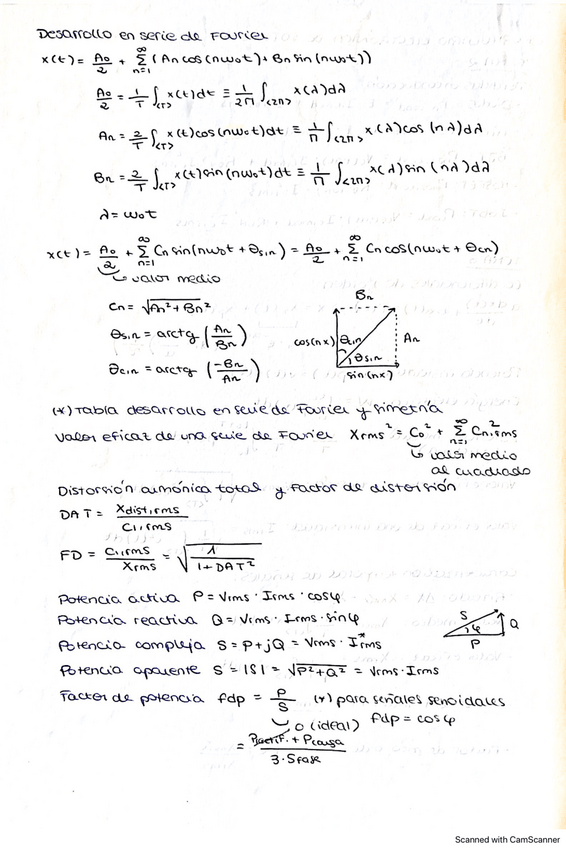 Desarrollo en serie de Fourier
x(t) = A₀/2 + Σ_{n=1}^{∞} (An cos(nω₀t) + Bn sin(nω₀t))
A₀/2 = 1/T ∫_{<T>} x(t)dt ≡ 1/2Π ∫_{<2Π>} x(λ)dλ
An = 2/T ∫_{<T>} x(t)cos(nω₀t)dt ≡ 1/Π ∫_{<2Π>} x(λ)cos(nλ)dλ
Bn = 2/T ∫_{<T>} x(t)sin(nω₀t)dt ≡ 1/Π ∫_{<2Π>} x(λ)sin(nλ)dλ
λ = ω₀t
x(t) = A₀/2 + Σ_{n=1}^{∞} Cn sin(nω₀t + θs,n) = A₀/2 + Σ_{n=1}^{∞} Cn cos(nω₀t + θc,n)
valor medio
Cn = √(An² + Bn²)
θs,n = arctg (An/Bn)
θc,n = arctg (-Bn/An)
Bn
cos(nx) θc,n An
θs,n
sin(nx)
(*) Tabla desarrollo en serie de Fourier y simetría
Valor eficaz de una serie de Fourier Xrms² = C₀² + Σ_{n=1}^{∞} Cn,rms²
valor medio
al cuadrado
Distorsión armónica total y factor de distorsión
DAT = Xdist,rms / C1,rms
FD = C1,rms / Xrms = √(1 / 1+DAT²)
Potencia activa P = Vrms · Irms · cosφ
Potencia reactiva Q = Vrms · Irms · sinφ
S φ Q
P
Potencia compleja S = P+jQ = Vrms · Irms*
Potencia aparente S = |S| = √(P²+Q²) = Vrms · Irms
Factor de potencia fdp = P/S (*) para señales senoidales
fdp = cosφ
0 (ideal)
= Prectif. + Pcarga / 3·Sfase
Scanned with CamScanner